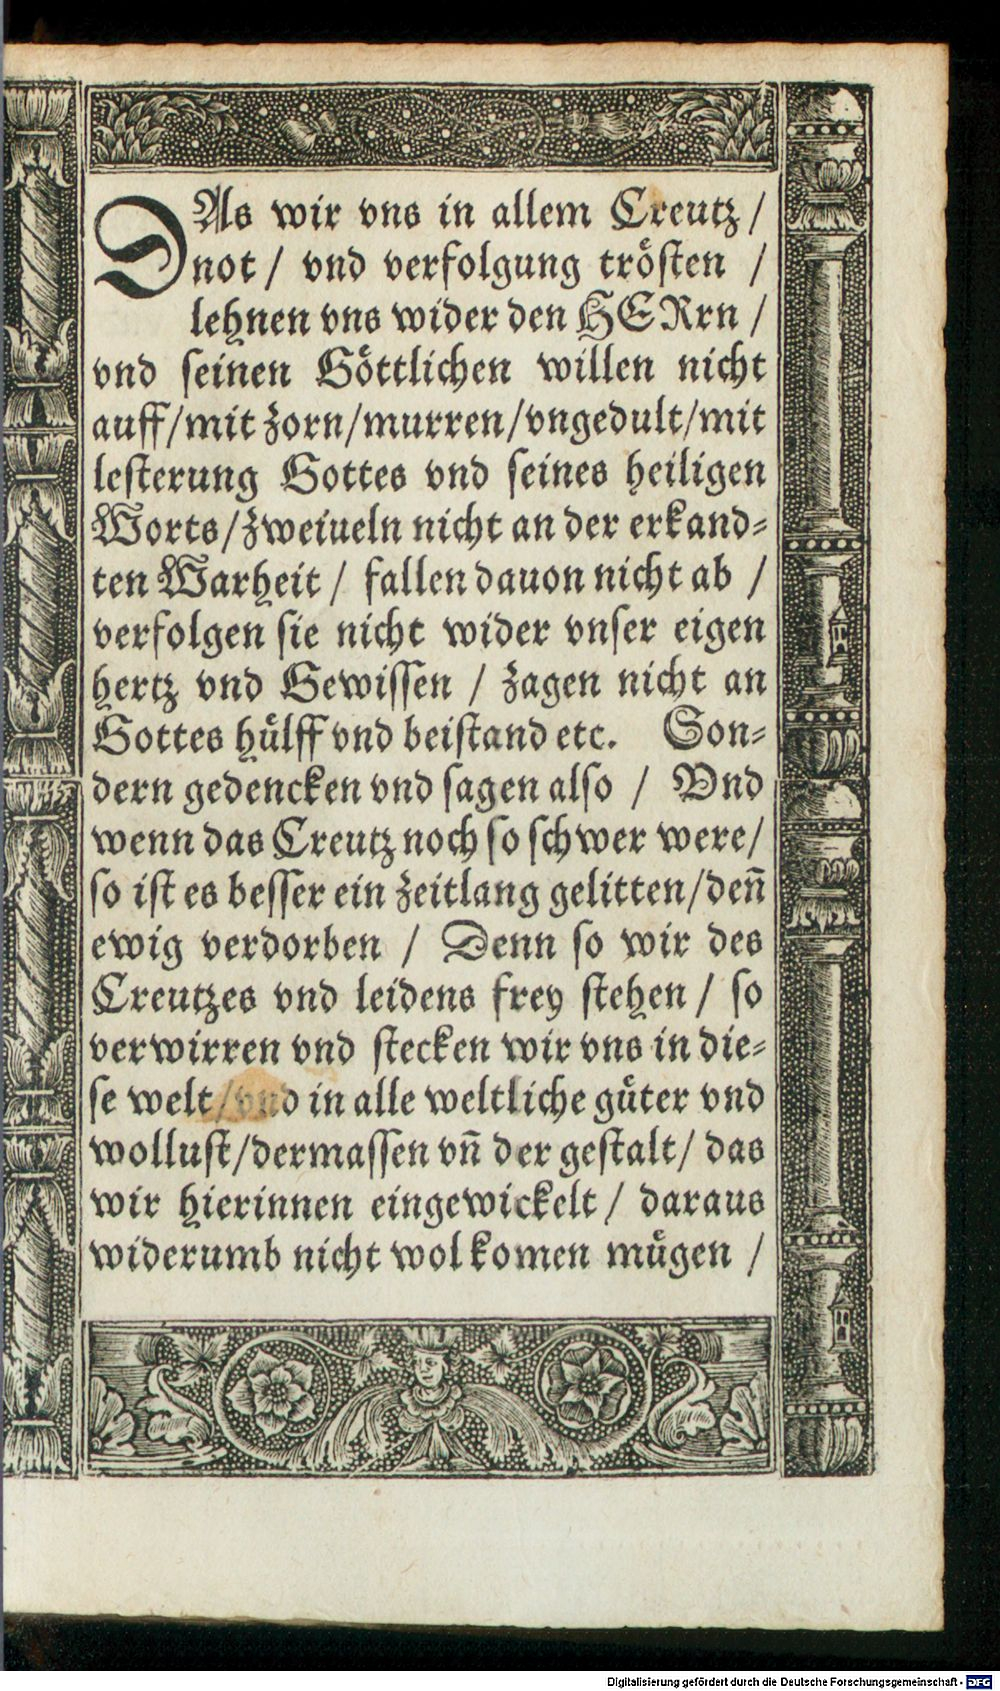 DAs wir vns in allem Creutz /
not / vnd verfolgung trösten /
lehnen vns wider den HERrn /
vnd seinen Göttlichen willen nicht
auff/mit zorn/murren/vngedult/mit
lesterung Gottes vnd seines heiligen
Worts/zweiueln nicht an der erkand-
ten Warheit / fallen dauon nicht ab /
verfolgen sie nicht wider vnser eigen
hertz vnd Gewissen / zagen nicht an
Gottes hülff vnd beistand etc. Son-
dern gedencken vnd sagen also / Vnd
wenn das Creutz noch so schwer were/
so ist es besser ein zeitlang gelitten/deñ
ewig verdorben / Denn so wir des
Creutzes vnd leidens frey stehen / so
verwirren vnd stecken wir vns in die-
se welt/vnd in alle weltliche güter vnd
wollust/dermassen vñ der gestalt/ das
wir hierinnen eingewickelt / daraus
widerumb nicht wol komen mügen /
Digitalisierung gefördert durch die Deutsche Forschungsgemeinschaft - DFG